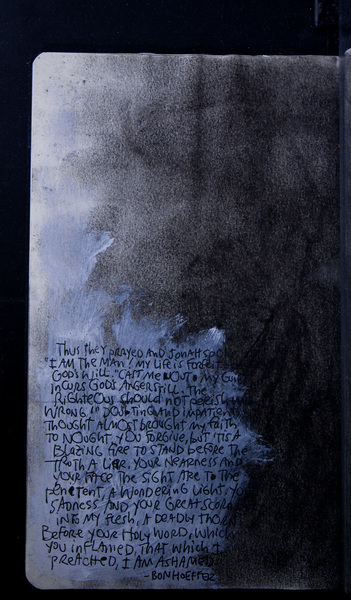 Thus they prayed and Jonah spo
"I am the man! My life is forfeit
God's will. "Cast me out! My guilt
incurs God's anger still. The
righteous should not perish
wrong!" Doubting and impatien
thought almost brought my faith
to nought. You forgive, but 'tis a
blazing fire to stand before the
truth a liar. Your nearness and
your face the sight are to the
penetent, a wondering light. Yo
sadness and your great scorn
into my flesh, a deadly thorn
Before your holy word, which
you inflamed, that which I
preached, I am ashamed.
-Bonhoeffer